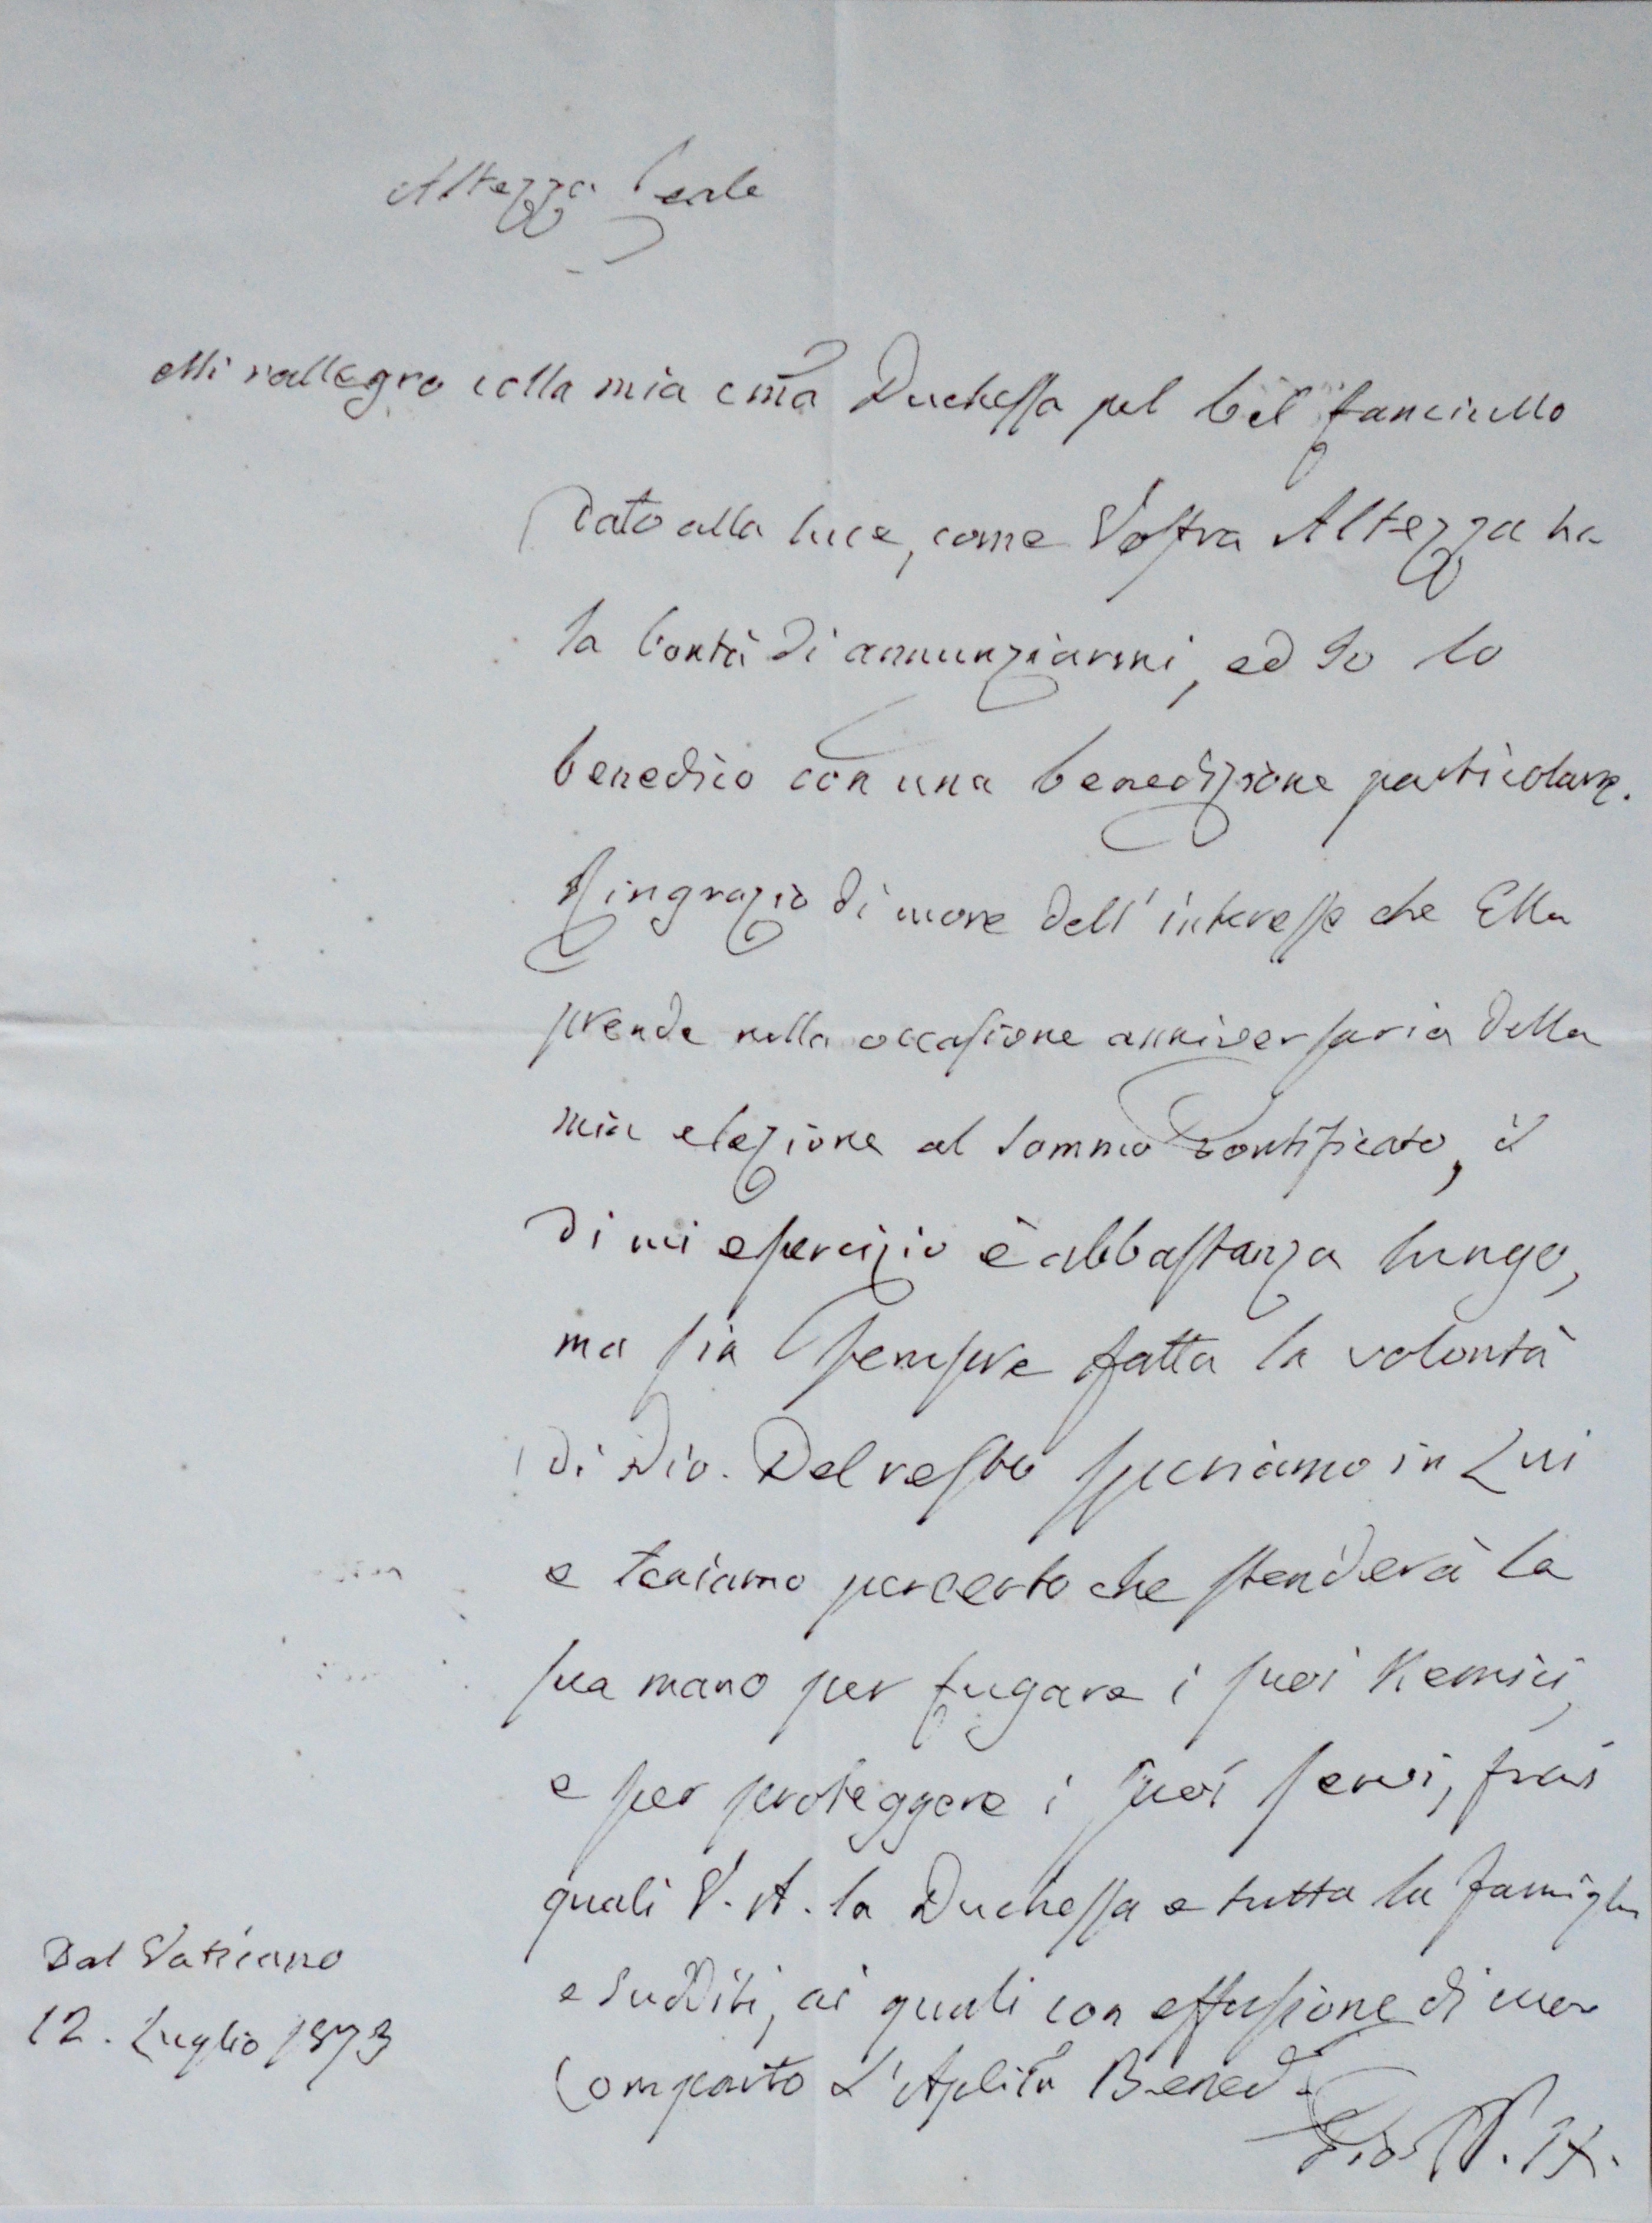 Altezza Reale
Mi rallegro colla mia cma Duchessa pel bel fanciullo
dato alla luce, come Vostra Altezza ha
la bontà di annunziarmi, ed Io lo
benedico con una benedizione particolare.
Ringrazio di cuore dell'interesse che Ella
prende nella occasione anniversaria della
mia elezione al Sommo Pontificato, il
di cui esercizio è abbastanza lungo,
ma sia sempre fatta la volontà
di Dio. Del resto speriamo in Lui
e teniamo per certo che stenderà la
sua mano per fugare i suoi Nemici,
e per proteggere i suoi servi, frai
quali V. A. la Duchessa e tutta la famiglia
e Sudditi, ai quali con effusione di cuore
Comparto L'Aplica Bened.
Dal Vaticano
12. Luglio 1873
Pio P. IX.